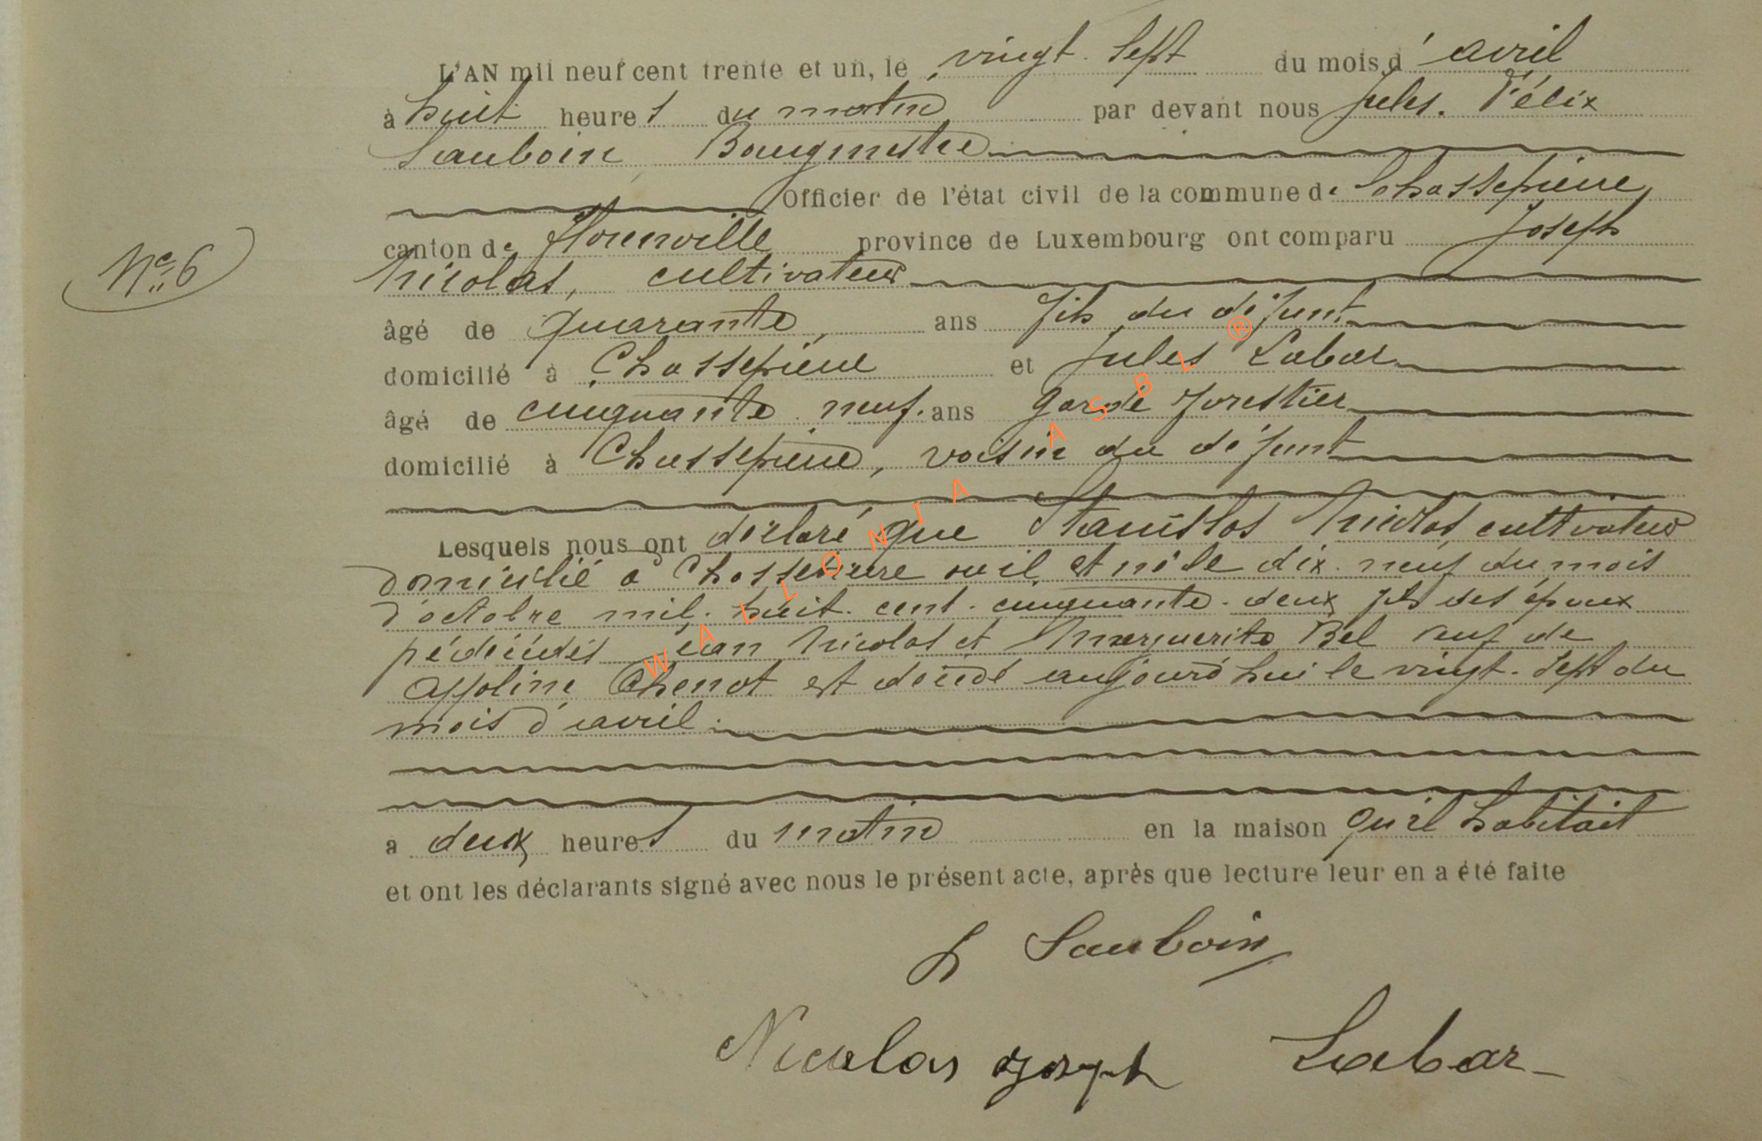 L'AN mil neuf cent trente et un, le vingt. sept du mois d'avril
à huit heures du matin par devant nous Jules. Félix
Sauboin Bourgmestre
Officier de l'état civil de la commune de Chassepierre,
canton de Florenville province de Luxembourg ont comparu Joseph
N°6
Nicolas, cultivateur
âgé de quarante, ans fils du défunt
domicilié à Chassepierre et Jules Labar
âgé de cinquante neuf. ans garde forestier
domicilié à Chassepierre, voisin du défunt
Lesquels nous ont déclaré que Stanislas Nicolas, cultivateur
domicilié à Chassepierre où il est né le dix. neuf du mois
d'octobre mil. huit. cent. cinquante. deux, fils des époux
Jean Nicolas et Marguerite Bel veuf de
Appoline Chenot est décédé aujourd'hui le vingt. sept du
mois d'avril.
à deux heures du matin en la maison qu'il habitait
et ont les déclarants signé avec nous le présent acte, après que lecture leur en a été faite
Sauboin
Nicolas Joseph Labar
WALLONIA ASBL ®